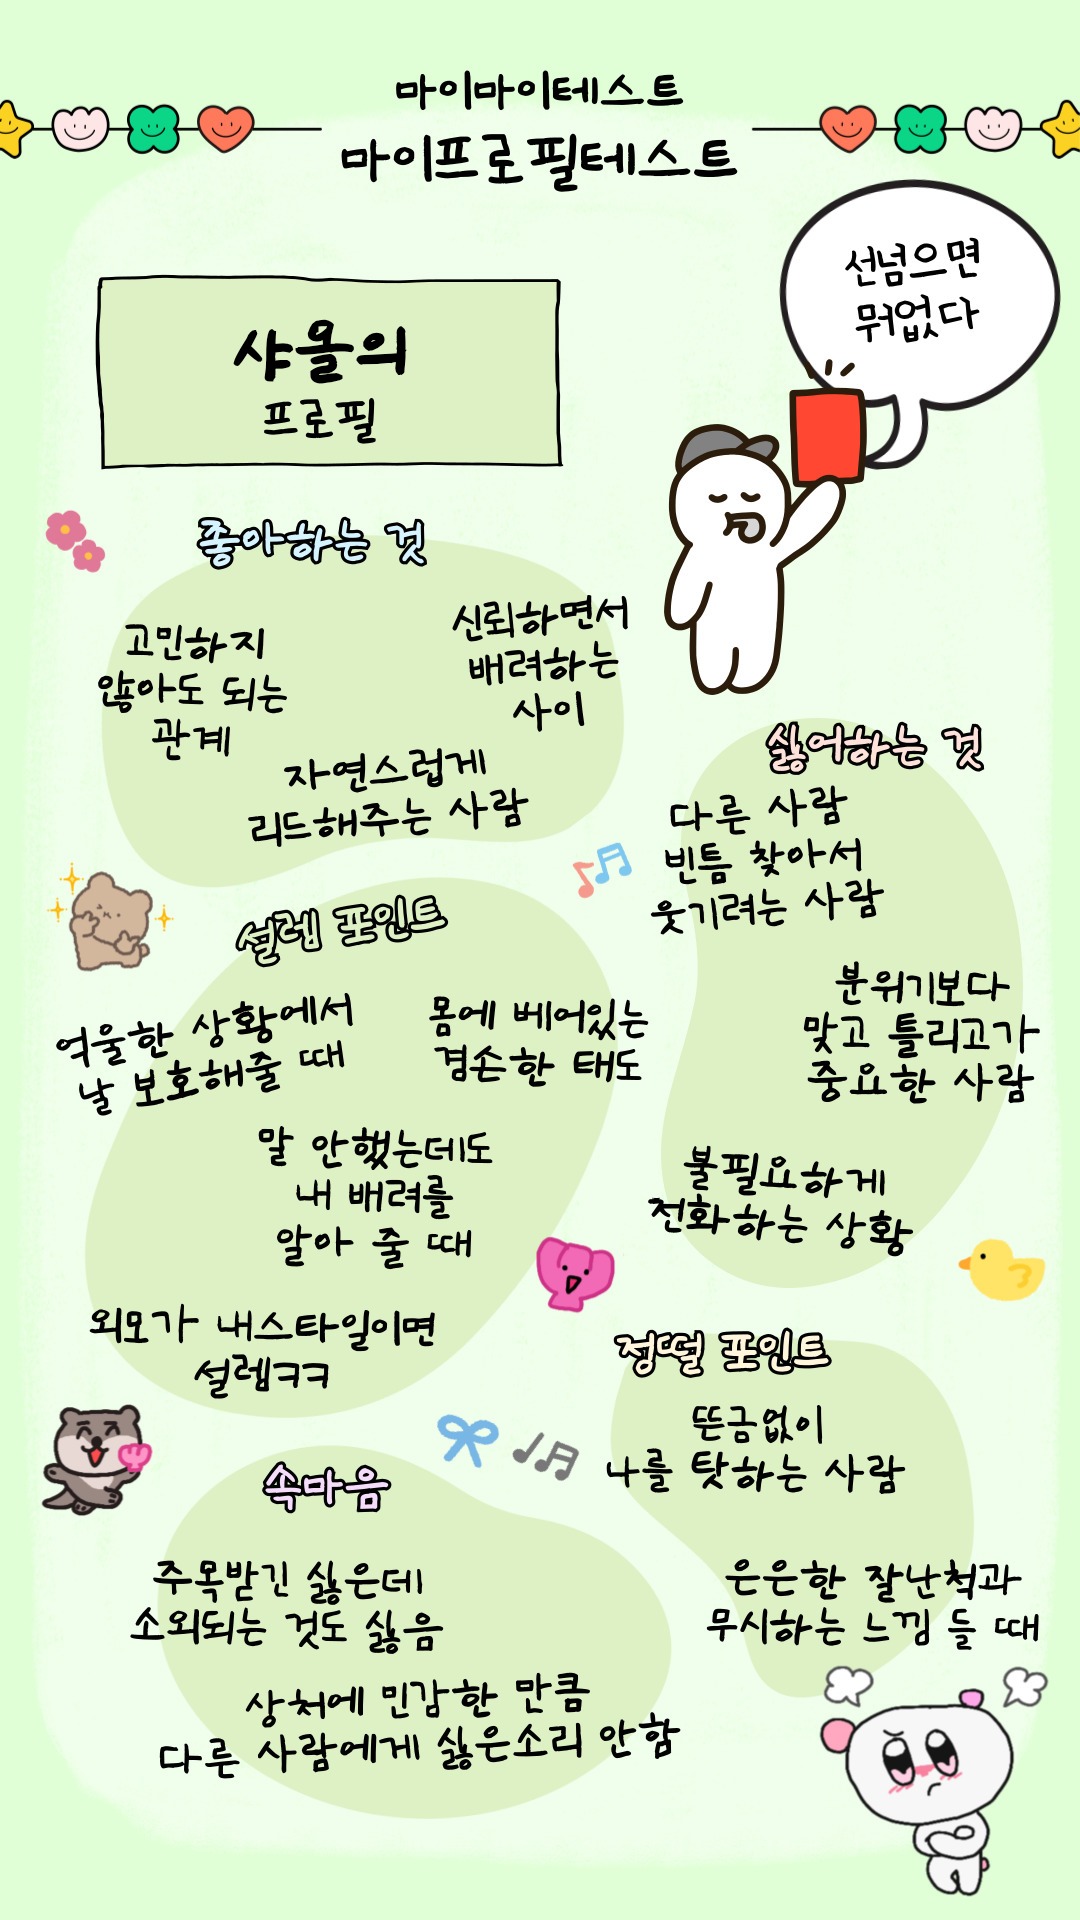 마이마이테스트
마이프로필테스트
선넘으면
뭐없다
샤올의
프로필
좋아하는 것
고민하지
않아도 되는
관계
신뢰하면서
배려하는
사이
자연스럽게
리드해주는 사람
싫어하는 것
다른 사람
빈틈 찾아서
웃기려는 사람
분위기보다
맞고 틀리고가
중요한 사람
불필요하게
전화하는 상황
설렘 포인트
억울한 상황에서
날 보호해줄 때
몸에 베어있는
겸손한 태도
말 안했는데도
내 배려를
알아 줄 때
외모가 내스타일이면
설렘ㅋㅋ
정떨 포인트
뜬금없이
나를 탓하는 사람
은은한 잘난척과
무시하는 느낌 들 때
속마음
주목받긴 싫은데
소외되는 것도 싫음
상처에 민감한 만큼
다른 사람에게 싫은소리 안함